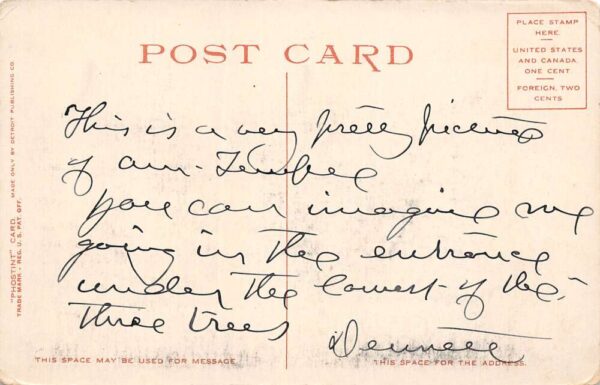 POST CARD
PLACE STAMP
HERE.
UNITED STATES
AND CANADA
ONE CENT
FOREIGN, TWO
CENTS
"PHOSTINT" CARD
MADE ONLY BY DETROIT PUBLISHING CO.
TRADE MARK - REG. U.S. PAT. OFF.
This is a very pretty picture
of our Temple
you can imagine me
going in the entrance
under the lowest of the
three trees
THIS SPACE MAY BE USED FOR MESSAGE.
THIS SPACE FOR THE ADDRESS.